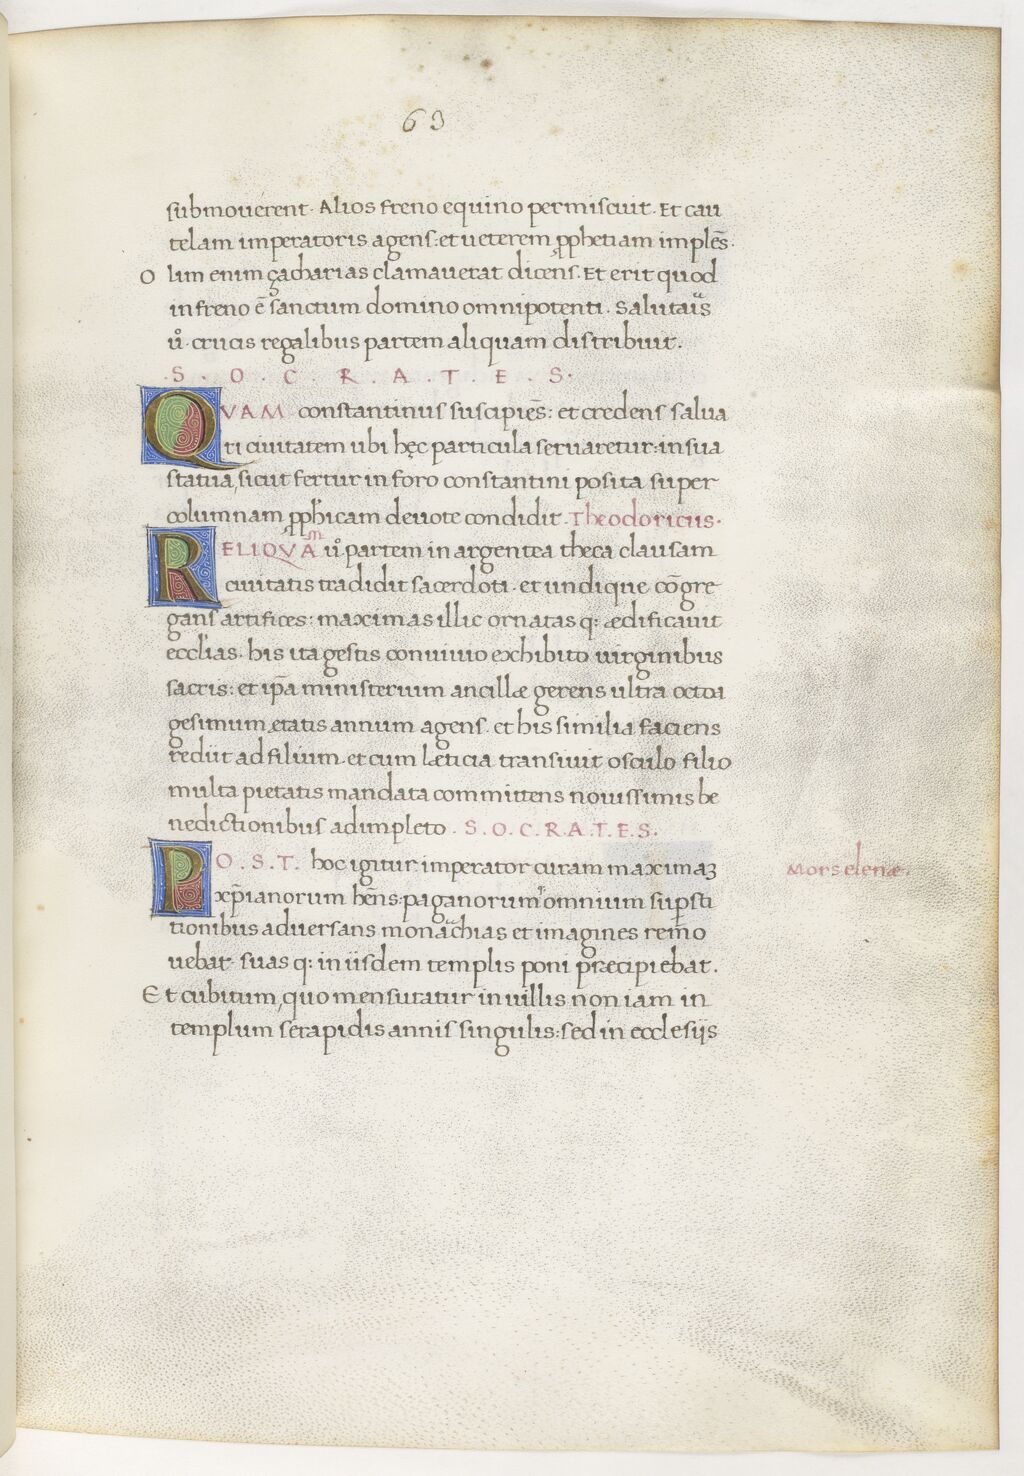 63
submouerent. Alios freno equino permiscuit. Et cau
telam imperatoris agens: et ueterem ꝓphetiam implēs.
O lim enim çacharias clamauerat dicens. Et erit quod
in freno ē sanctum domino omnipotenti. Salutaīs
uͦ. crucis regalibus partem aliquam distribuit.
.S. O. C. R. A. T. E. S.
QVAM constantinus suscipiēs: et credens salua
ri ciuitatem ubi hęc particula seruaretur: in sua
statua, sicut fertur in foro constantini posita super
columnam ꝓphicam deuote condidit. Theodoricus.
RELIQVAᵐ uͦ partem in argentea theca clausam
ciuitatis tradidit sacerdoti. et undique cōgre
gans artifices: maximas illic ornatas q: ædificauit
ecclīas. his ita gestis conuiuio exhibito uirginibus
sacris: et ip̄a ministerium ancillæ gerens ultra octoa
gesimum ętatis annum agens. et his similia faciens
rediit ad filium. et cum læticia transiuit osculo filio
multa pietatis mandata committens nouissimis be
nedictionibus adimpleto. S.O.C.R.A.T.E.S.
PO.S.T. hoc igitur imperator curam maximaꝫ
xp̄ianorum hēns: paganorum omnium suꝑsti
tionibus aduersans monachias et imagines remo
uebat. suas q: in iisdem templis poni præcipiebat.
Et cubitum, quo mensuratur in uillis non iam in
templum serapidis annis singulis: sed in ecclesijs
Mors elenæ.